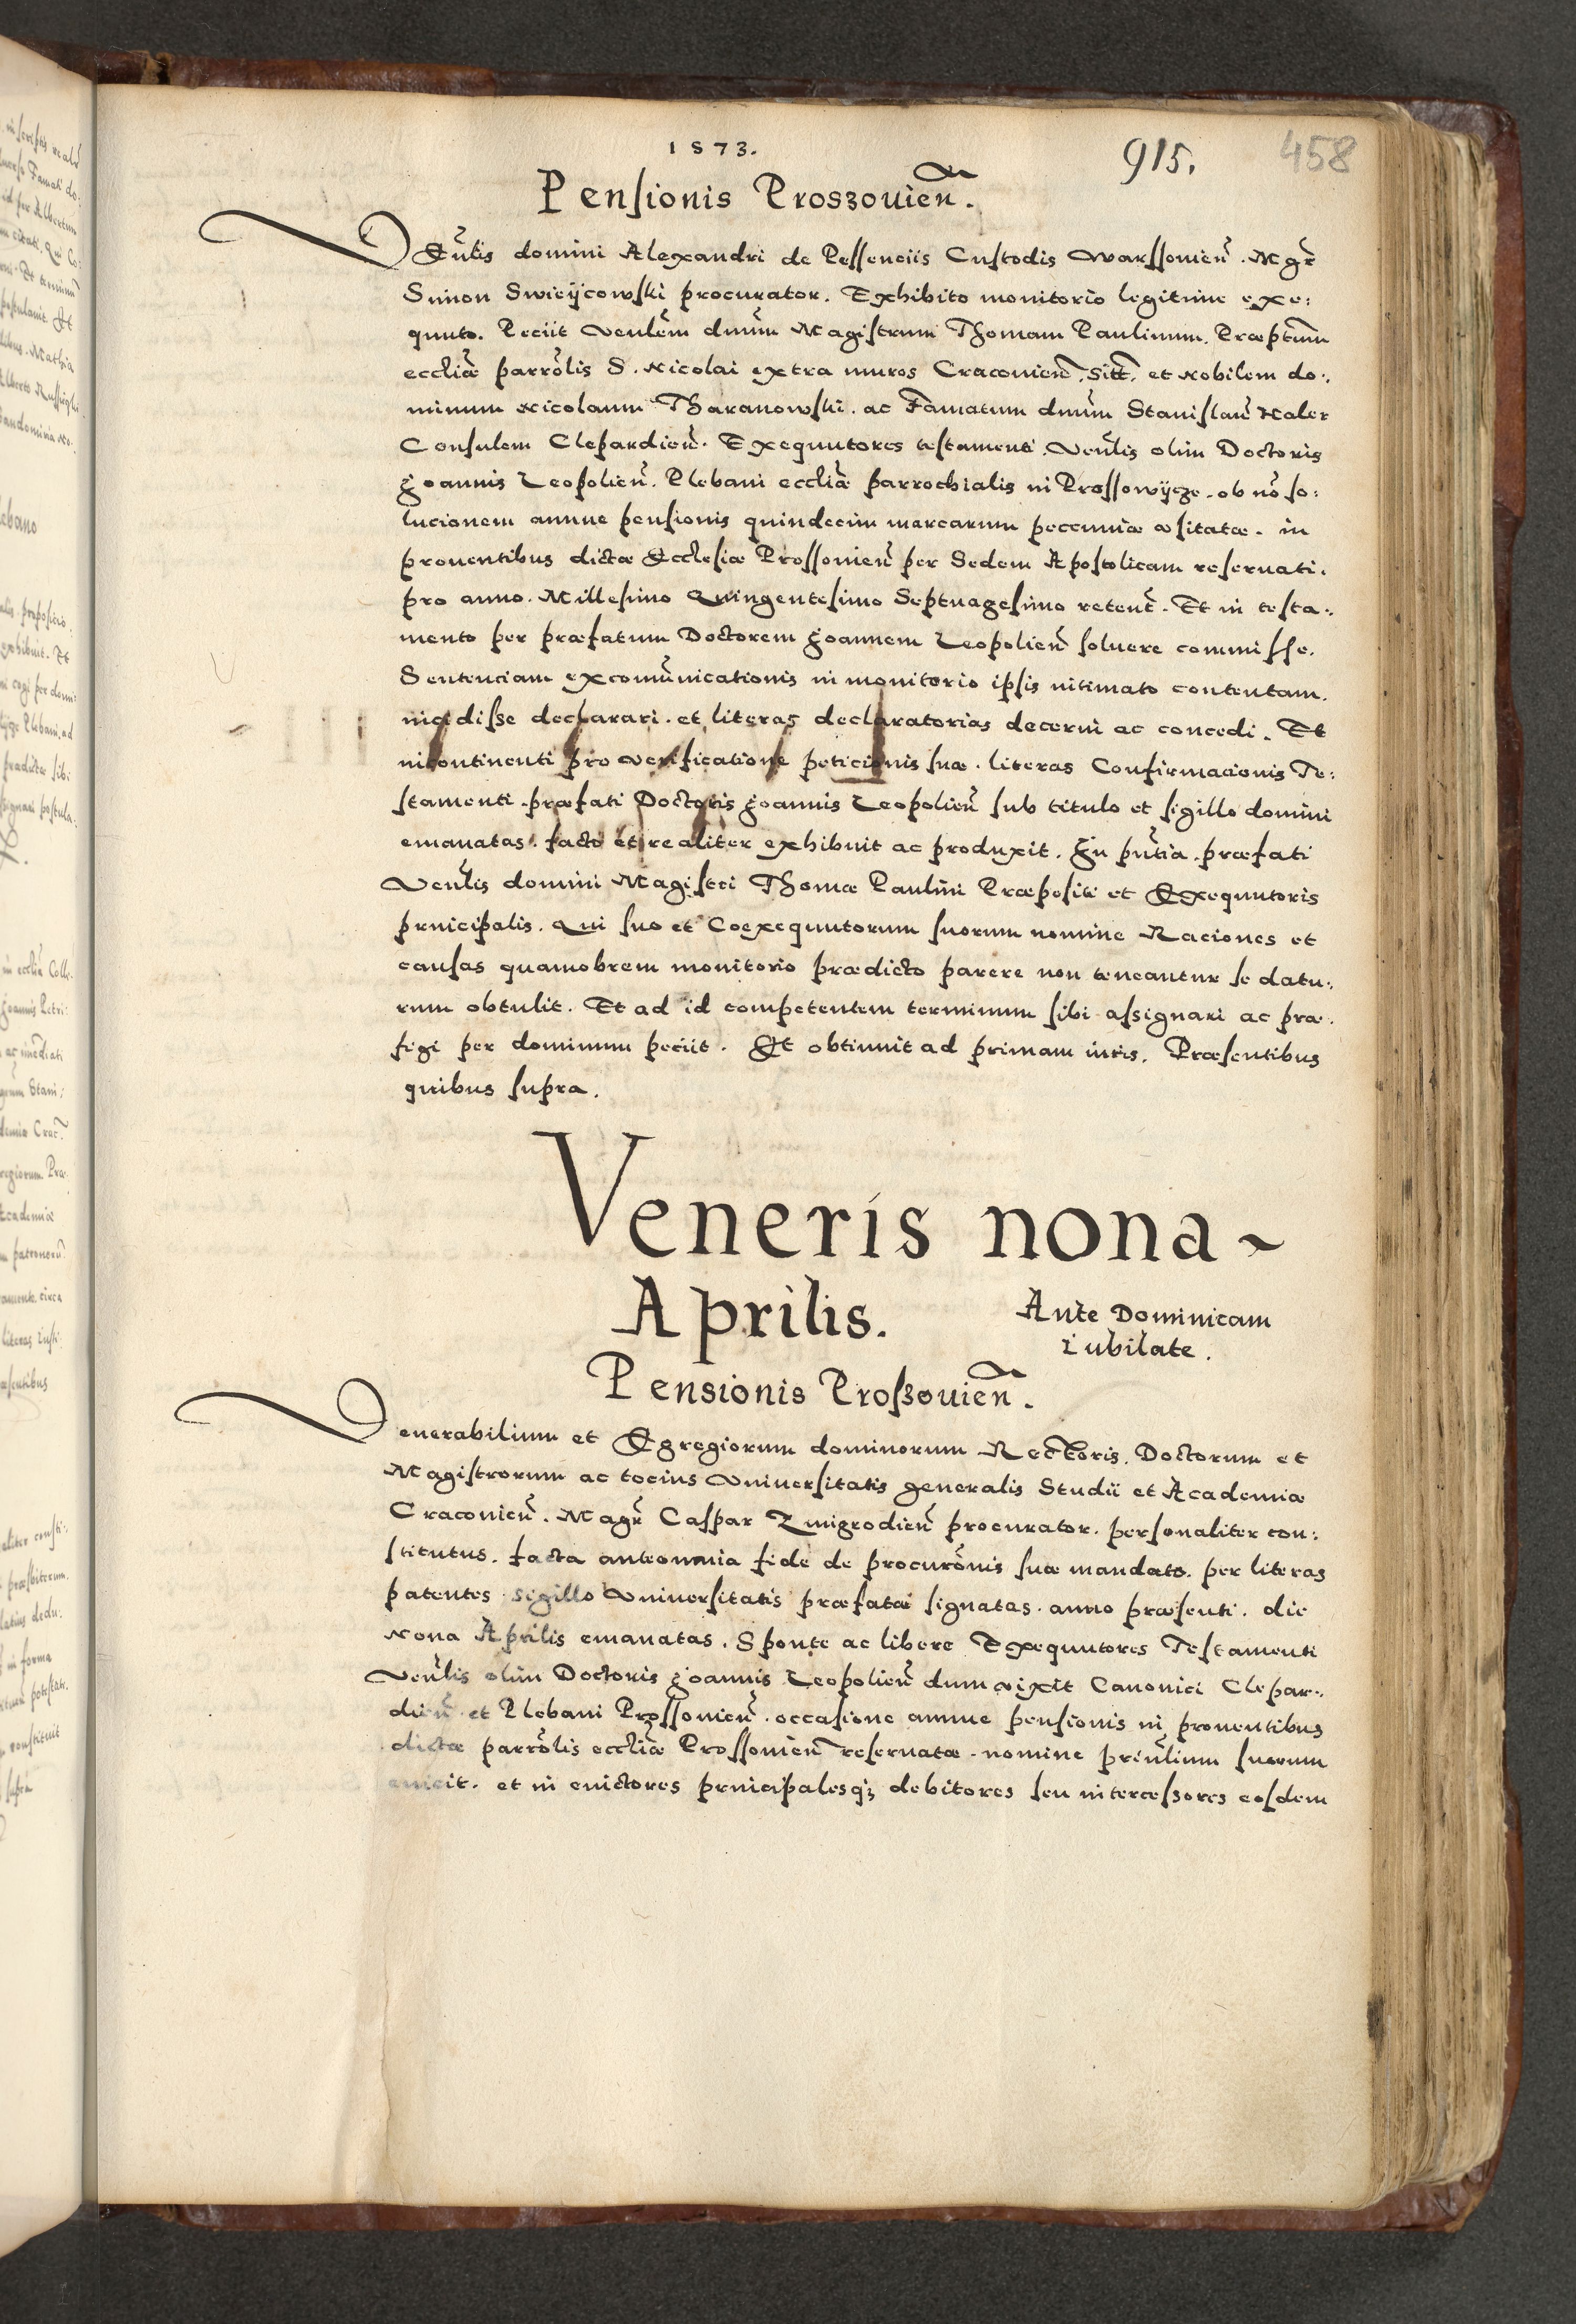 1573.
915.
458
Pensionis Proszouien̄.
VEn̄lis domini Alexandri de Pessenciis Custodis Warssouien̄. Mgr̄
Simon Swieÿcowski procurator. Exhibito monitorio legitime exe:
quuto. Peciit Venlēm dnūm Magistrum Thomam Paulinum. Præptūm
ecclīæ parrōlis S. Nicolai extra muros Cracouien̄. sitt̄. et Nobilem do:
minum Nicolaum Tharanowski. ac Famatum dnūm Stanislaū Kaler
Consulem Clepardien̄. Exequutores testamenti. Ven̄lis olim Doctoris
Joannis Leopolien̄. Plebani ecclīæ parrochialis in Prossowÿcze. ob nō so:
lucionem annue pensionis quindecim marcarum pecuniæ vsitatæ. in
prouentibus dictæ Ecclesiæ Prossouien̄ per Sedem Apostolicam reseruati.
pro anno. Millesimo Quingentesimo Septuagesimo retent̄. Et in testa:
mento per præfatum Doctorem Joannem Leopolien̄ soluere commisse.
Sentenciam excomūnicationis in monitorio ipsis intimato contentam.
incidisse declarari. et literas declaratorias decerni ac concedi. Et
incontinenti pro verificatione peticionis suæ. literas Confirmacionis Te:
stamenti præfati Doctoris Joannis Leopolien̄ sub titulo et sigillo domini
emanatas. facto et realiter exhibuit ac produxit. In pn̄tia. præfati
Ven̄lis domini Magistri Thomæ Paulini Præpositi et Exequutoris
principalis. Qui suo et Coexequutorum suorum nomine Raciones et
causas quamobrem monitorio prædicto parere non teneantur se datu:
rum obtulit. Et ad id competentem terminum sibi assignari ac præ.
figi per dominum peciit. Et obtinuit ad primam iuris. Præsentibus
quibus supra.
Veneris nona
Aprilis.
Ante Dominicam
Iubilate.
Pensionis Proszouien̄.
Venerabilium et Egregiorum dominorum Rectoris. Doctorum et
Magistrorum ac tocius Vniuersitatis generalis Studii et Academiæ
Cracouien̄. Magr̄ Caspar Zmigrodien̄ procurator. personaliter con:
stitutus. facta anteomnia fide de procurōnis suæ mandato. per literas
patentes sigillo Vniuersitatis præfatæ signatas. anno præsenti. die
Nona Aprilis emanatas. Sponte ac libere Exequutores Testamenti
Ven̄lis olim Doctoris Joannis Leopolien̄ dum vixit Canonici Clepar:
dien̄ et Plebani Prossouien̄. occasione annue pensionis in prouentibus
dictæ parrōlis ecclīæ Prossouien̄ reseruatæ. nomine prin̄lium suorum
euicit. et in euictores principalesq3 debitores seu intercessores eosdem